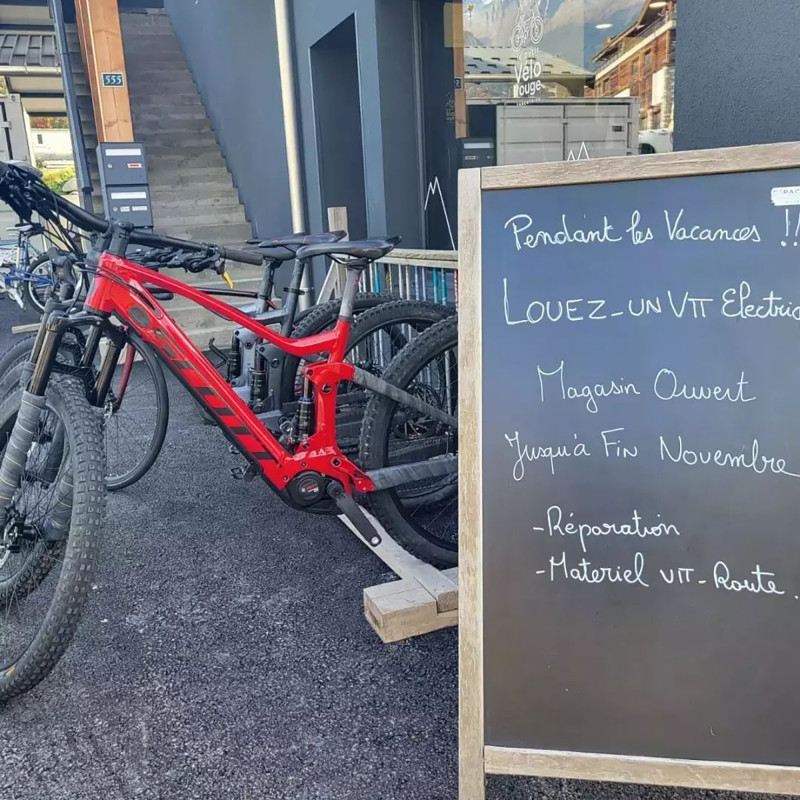 555
Vélo
Rouge
Pendant les Vacances !!
LOUEZ-UN VTT Electriq
Magasin Ouvert
Jusqu'à Fin Novembre
-Réparation
-Materiel VTT-Route.
SCOTT